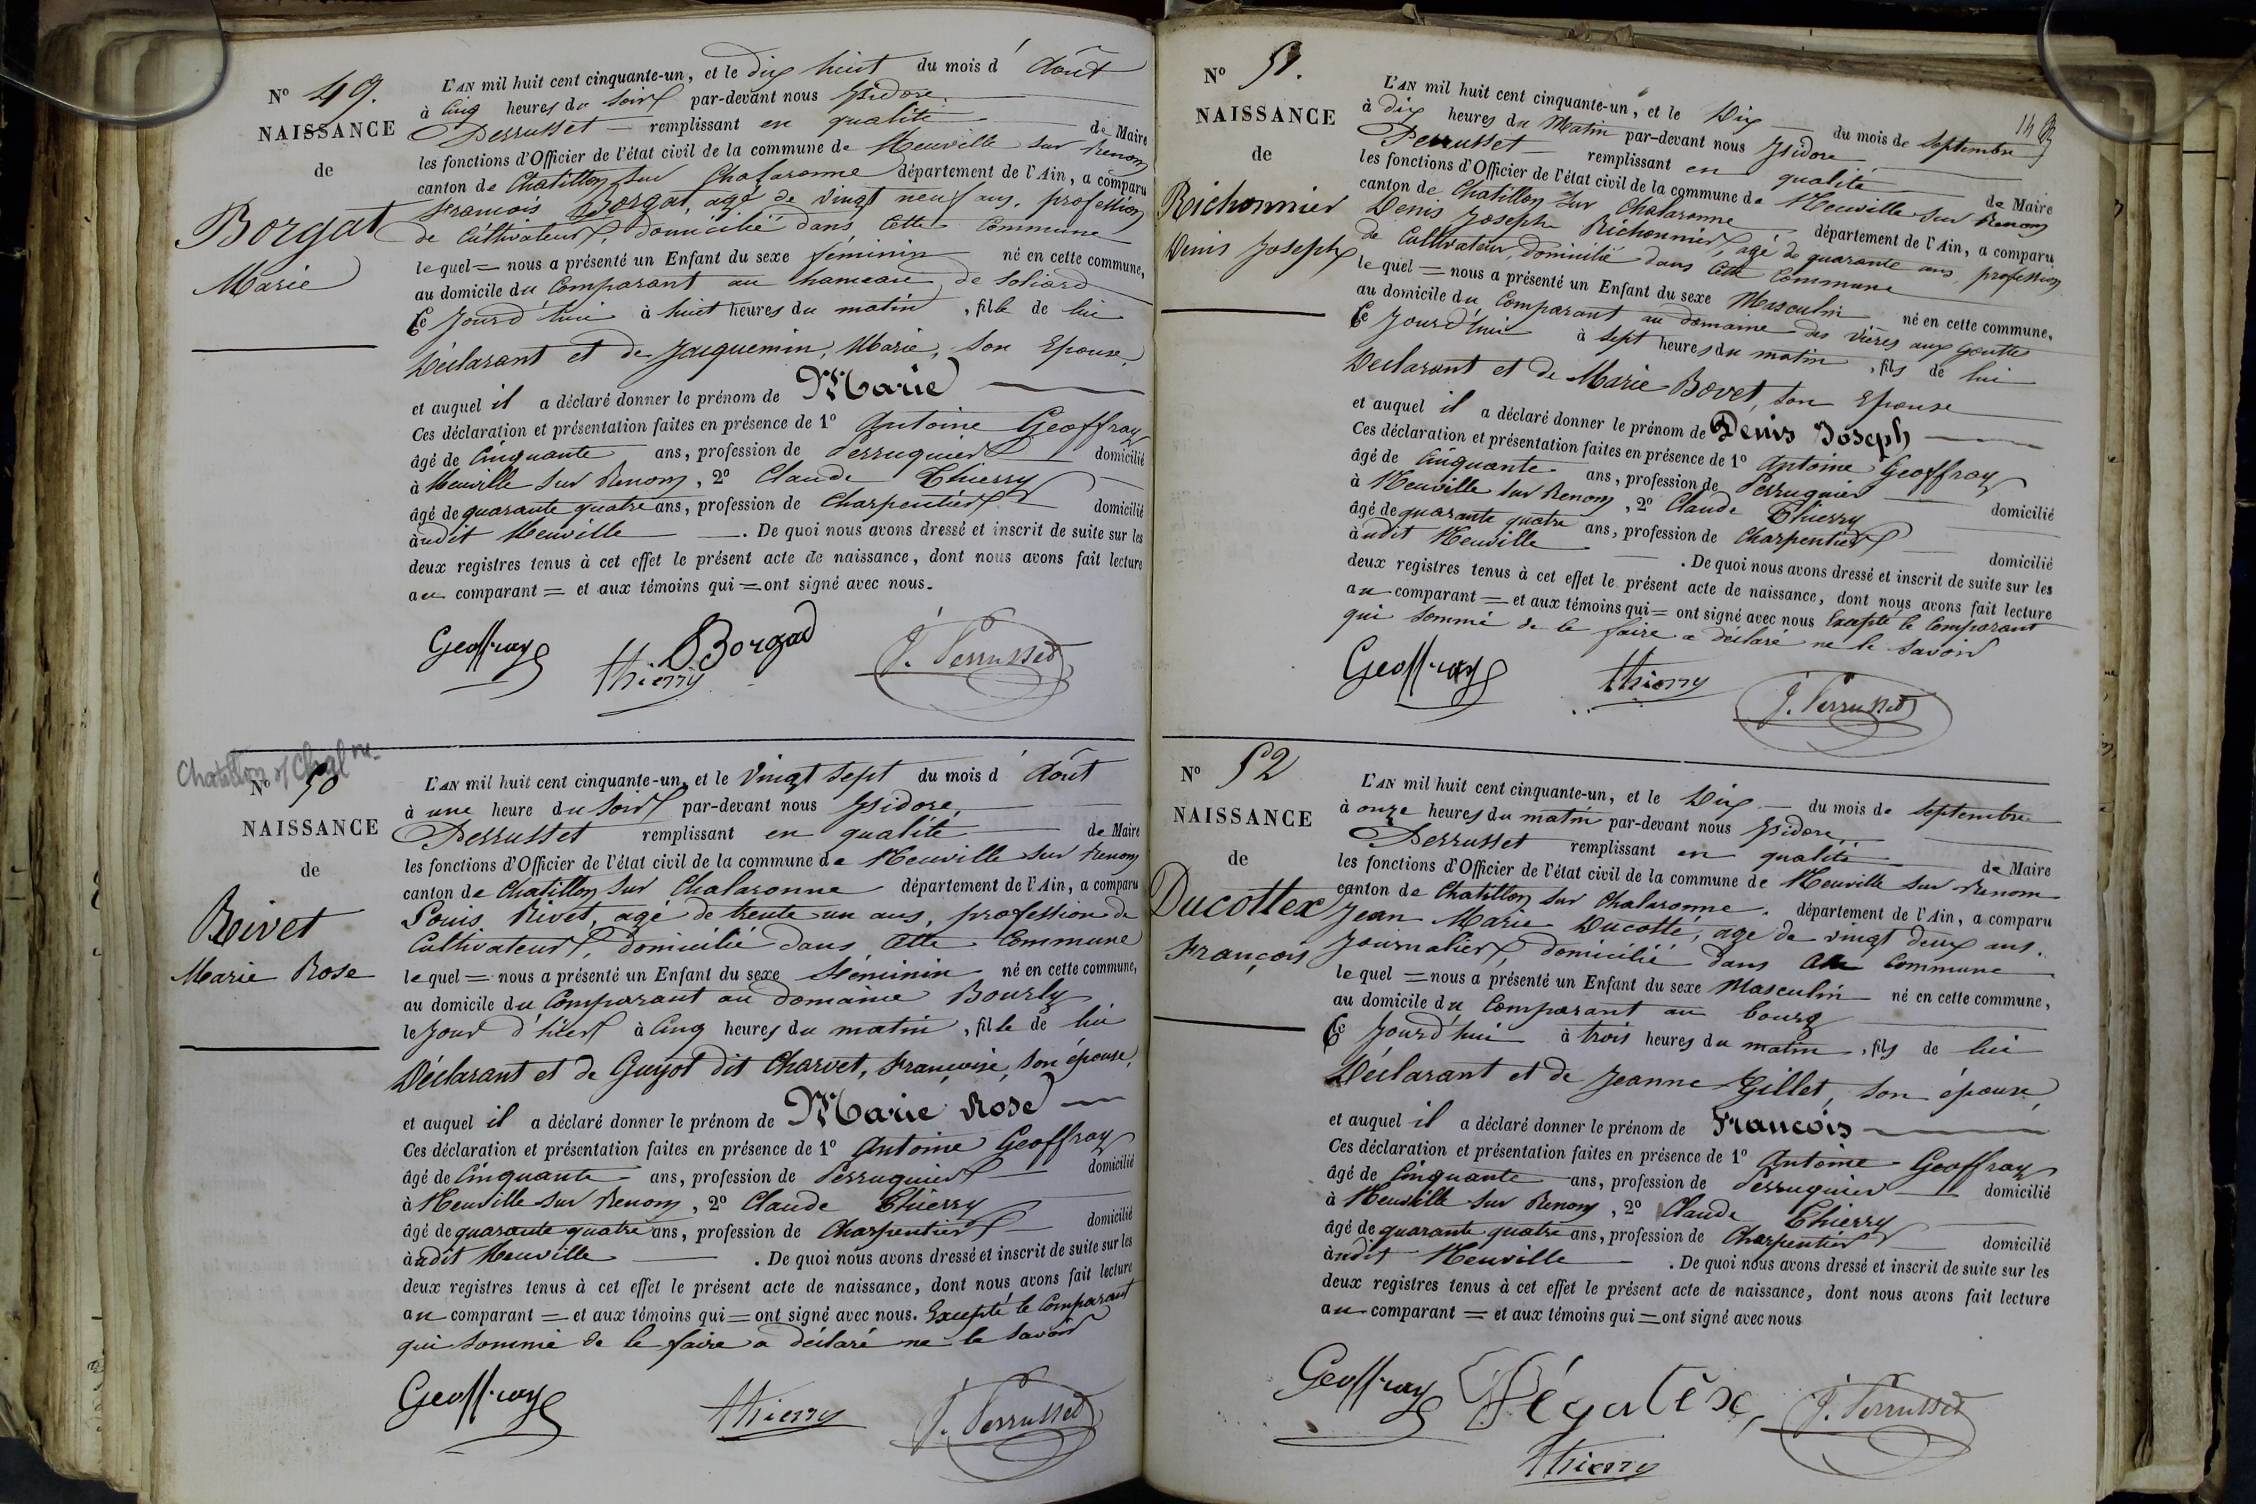 N° 49.
NAISSANCE
de
Borgat
Marie
L'AN mil huit cent cinquante-un, et le dix huit du mois d'Août
à Cinq heures du Soir par-devant nous Isidore
Perrusset remplissant en qualité de Maire
les fonctions d'Officier de l'état civil de la commune de Neuville sur Renom
canton de Chatillon sur Chalaronne département de l'Ain, a comparu
François Borgat, agé de vingt neuf ans, profession
de Cultivateur, domicilié dans cette Commune
lequel = nous a présenté un Enfant du sexe féminin né en cette commune,
au domicile du Comparant au hameau de Soliard
Ce Jourd'hui à huit heures du matin, fille de lui
Déclarant et de Jacquemin, Marie, Son Epouse,
et auquel il a déclaré donner le prénom de Marie
Ces déclaration et présentation faites en présence de 1° Antoine Geoffray
âgé de Cinquante ans, profession de Perruquier domicilié
à Neuville sur Renom, 2° Claude Thierry
âgé de quarante quatre ans, profession de Charpentier domicilié
audit Neuville. De quoi nous avons dressé et inscrit de suite sur les
deux registres tenus à cet effet le présent acte de naissance, dont nous avons fait lecture
au comparant = et aux témoins qui = ont signé avec nous.
Geoffray Thierry Borgad J. Perrusset
Chatillon s/ Chal ne
N° 50
NAISSANCE
de
Rivet
Marie Rose
L'AN mil huit cent cinquante-un, et le Vingt Sept du mois d'Août
à une heure du Soir par-devant nous Isidore
Perrusset remplissant en qualité de Maire
les fonctions d'Officier de l'état civil de la commune de Neuville sur Renom
canton de Chatillon sur Chalaronne département de l'Ain, a comparu
Louis Rivet, agé de trente un ans, profession de
Cultivateur, domicilié dans cette Commune
lequel = nous a présenté un Enfant du sexe Féminin né en cette commune,
au domicile du Comparant au domaine Bourly
le Jour d'hier à Cinq heures du matin, fille de lui
Déclarant et de Guyot dit Charvet, Françoise, Son épouse,
et auquel il a déclaré donner le prénom de Marie Rose
Ces déclaration et présentation faites en présence de 1° Antoine Geoffray
âgé de Cinquante ans, profession de Perruquier domicilié
à Neuville sur Renom, 2° Claude Thierry
âgé de quarante quatre ans, profession de Charpentier domicilié
audit Neuville. De quoi nous avons dressé et inscrit de suite sur les
deux registres tenus à cet effet le présent acte de naissance, dont nous avons fait lecture
au comparant = et aux témoins qui = ont signé avec nous. Excepté le Comparant
qui sommé de le faire a déclaré ne le savoir
Geoffray Thierry J. Perrusset
N° 51.
NAISSANCE
de
Richonnier
Denis Joseph
L'AN mil huit cent cinquante-un, et le Dix du mois de Septembre
à dix heures du Matin par-devant nous Isidore
Perrusset remplissant en qualité de Maire
les fonctions d'Officier de l'état civil de la commune de Neuville sur Renom
canton de Chatillon sur Chalaronne département de l'Ain, a comparu
Denis Joseph Richonnier, agé de quarante ans, profession
de Cultivateur, domicilié dans cette Commune
lequel = nous a présenté un Enfant du sexe Masculin né en cette commune,
au domicile du Comparant au domaine des vières aux gouttes
Ce Jourd'hui à Sept heures du matin, fils de lui
Déclarant et de Marie Bovet, son Epouse
et auquel il a déclaré donner le prénom de Denis Joseph
Ces déclaration et présentation faites en présence de 1° Antoine Geoffray
âgé de Cinquante ans, profession de Perruquier domicilié
à Neuville sur Renom, 2° Claude Thierry
âgé de quarante quatre ans, profession de Charpentier domicilié
audit Neuville. De quoi nous avons dressé et inscrit de suite sur les
deux registres tenus à cet effet le présent acte de naissance, dont nous avons fait lecture
au comparant = et aux témoins qui = ont signé avec nous Excepté le Comparant
qui sommé de le faire a déclaré ne le savoir
Geoffray Thierry J. Perrusset
N° 52
NAISSANCE
de
Ducottex
François
L'AN mil huit cent cinquante-un, et le Dix du mois de Septembre
à onze heures du matin par-devant nous Isidore
Perrusset remplissant en qualité de Maire
les fonctions d'Officier de l'état civil de la commune de Neuville sur Renom
canton de Chatillon sur Chalaronne. département de l'Ain, a comparu
Jean Marie Ducotté, age de vingt deux ans.
Journalier, domicilié dans cette Commune
lequel = nous a présenté un Enfant du sexe Masculin né en cette commune,
au domicile du Comparant au bourg
Ce Jourd'hui à trois heures du matin, fils de lui
Déclarant et de Jeanne Gillet, Son épouse,
et auquel il a déclaré donner le prénom de François
Ces déclaration et présentation faites en présence de 1° Antoine Geoffray
âgé de Cinquante ans, profession de Perruquier domicilié
à Neuville sur Renom, 2° Claude Thierry
âgé de quarante quatre ans, profession de Charpentier domicilié
audit Neuville. De quoi nous avons dressé et inscrit de suite sur les
deux registres tenus à cet effet le présent acte de naissance, dont nous avons fait lecture
au comparant = et aux témoins qui = ont signé avec nous
Geoffray J. Perrusset
Thierry